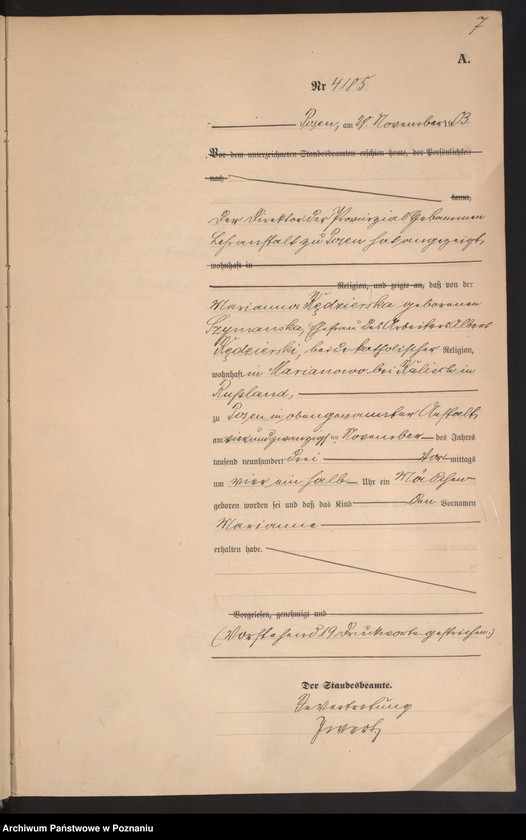 7
A.
Nr 4185
Posen, am 28. November 1903.
Vor dem unterzeichneten Standesbeamten erschien heute, der Persönlichkeit
nach
kannt,
Der Direktor der Provinzial Hebammen
Lehranstalt zu Posen hat angezeigt,
wohnhaft in
Religion, und zeigte an, daß von der
Marianna Kędzierska geborenen
Szymanska, Ehefrau des Arbeiters Albert
Kędzierski, beide katholischer Religion,
wohnhaft in Marianowo bei Kalisch in
Rußland,
zu Posen in obengenannter Anstalt
am vierundzwanzigsten November des Jahres
tausend neunhundert drei Vor mittags
um vier ein halb Uhr ein Mädchen
geboren worden sei und daß das Kind den Vornamen
Marianne
erhalten habe.
Vorgelesen, genehmigt und
(Vorstehend 19 Druckworte gestrichen.)
Der Standesbeamte.
In Vertretung
Archiwum Państwowe w Poznaniu